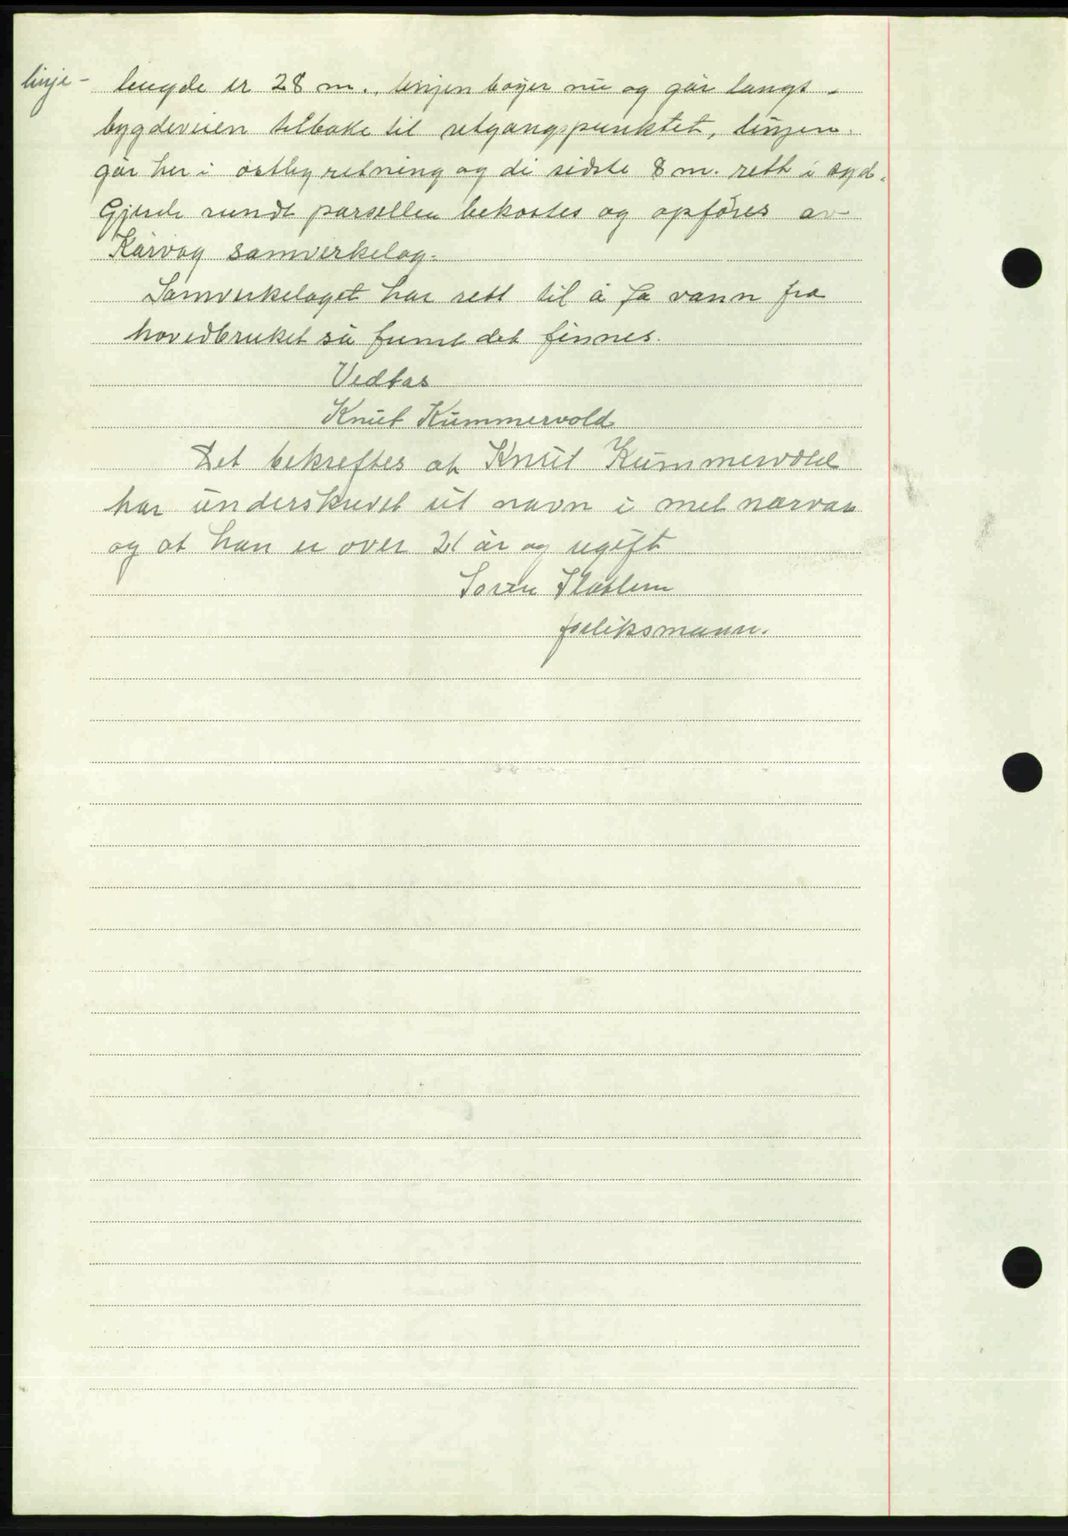 linje-
lengde er 28 m., linjen bøyer nu og går langs
bygdeveien tilbake til utgangspunktet, linjen
går her i østlig retning og de sidste 8 m. rett i syd.
Gjerde rundt parsellen bekostes og opføres av
Kårvåg samvirkelag.
Samvirkelaget har rett til å få vann fra
hovedbruket så fremt det finnes.
Vedtas
Knut Kummervold
Det bekreftes at Knut Kummervold
har underskrevet sit navn i mit nærvær
og at han er over 21 år og ugift
Søren
forliksmann.